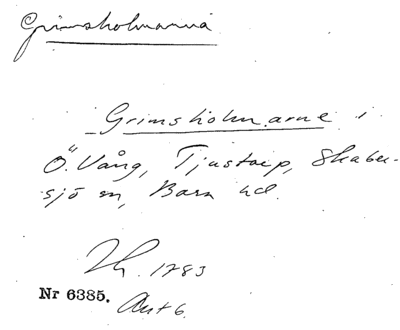 Grimsholmarna
Grimsholmarne i
Ö. Vång, Tjustorp, Skaber-
sjö sn, Bara hd.
Lk. 1783
Nr 6385. Akt 6.